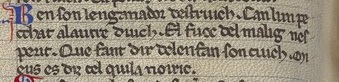 Ben son lenganador destruich. Can lun pe
chat al autre duich. El fuec del malig nes
perit. Que fant dir delenfan son cuich. On
eus es diz cel quila noiric.